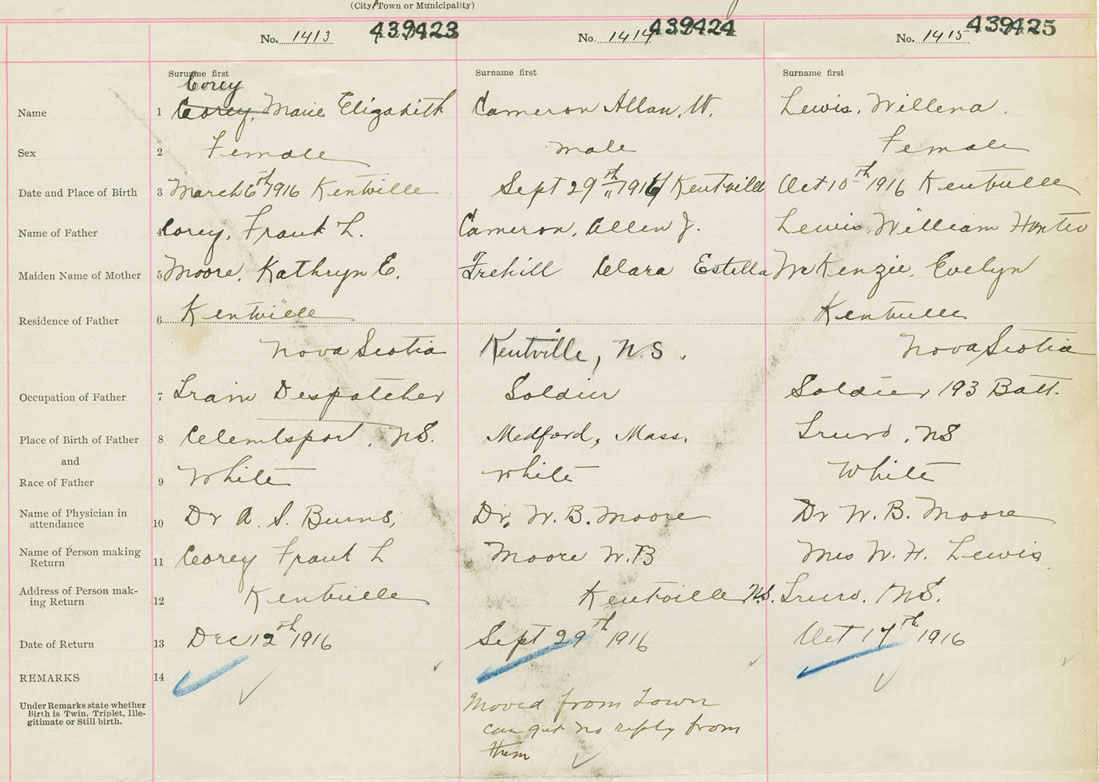 (City, Town or Municipality)
No. 1413 439423 No. 1414 439424 No. 1415 439425
Surname first Surname first Surname first
Corey
Name 1 Corey, Marie Elizabeth Cameron Allan, W. Lewis, Willena.
Sex 2 Female male Female
Date and Place of Birth 3 March 6th 1916 Kentville Sept 29th 1916 Kentville Oct 10th 1916 Kentville
Name of Father 4 Corey, Frank L. Cameron, Allen J. Lewis, William
Maiden Name of Mother 5 Moore, Kathryn E. Trehill Clara Estella McKenzie, Evelyn
Residence of Father 6 Kentville Kentville
Nova Scotia Kentville, N.S. Nova Scotia
Occupation of Father 7 Train Despatcher Soldier Soldier 193 Batt.
Place of Birth of Father 8 Clemtsport, NS. Medford, Mass. Truro, NS
and
Race of Father 9 White White White
Name of Physician in
attendance 10 Dr A. S. Burns, Dr. W. B. Moore Dr W. B. Moore
Name of Person making
Return 11 Corey Frank L Moore W.B Mrs W. H. Lewis
Address of Person mak-
ing Return 12 Kentville Kentville N.S. Truro. N.S.
Date of Return 13 Dec 12th 1916 Sept 29th 1916 Oct 17th 1916
REMARKS 14
Under Remarks state whether
Birth is Twin, Triplet, Ille-
gitimate or Still birth.
Moved from Town
can get no reply from
them